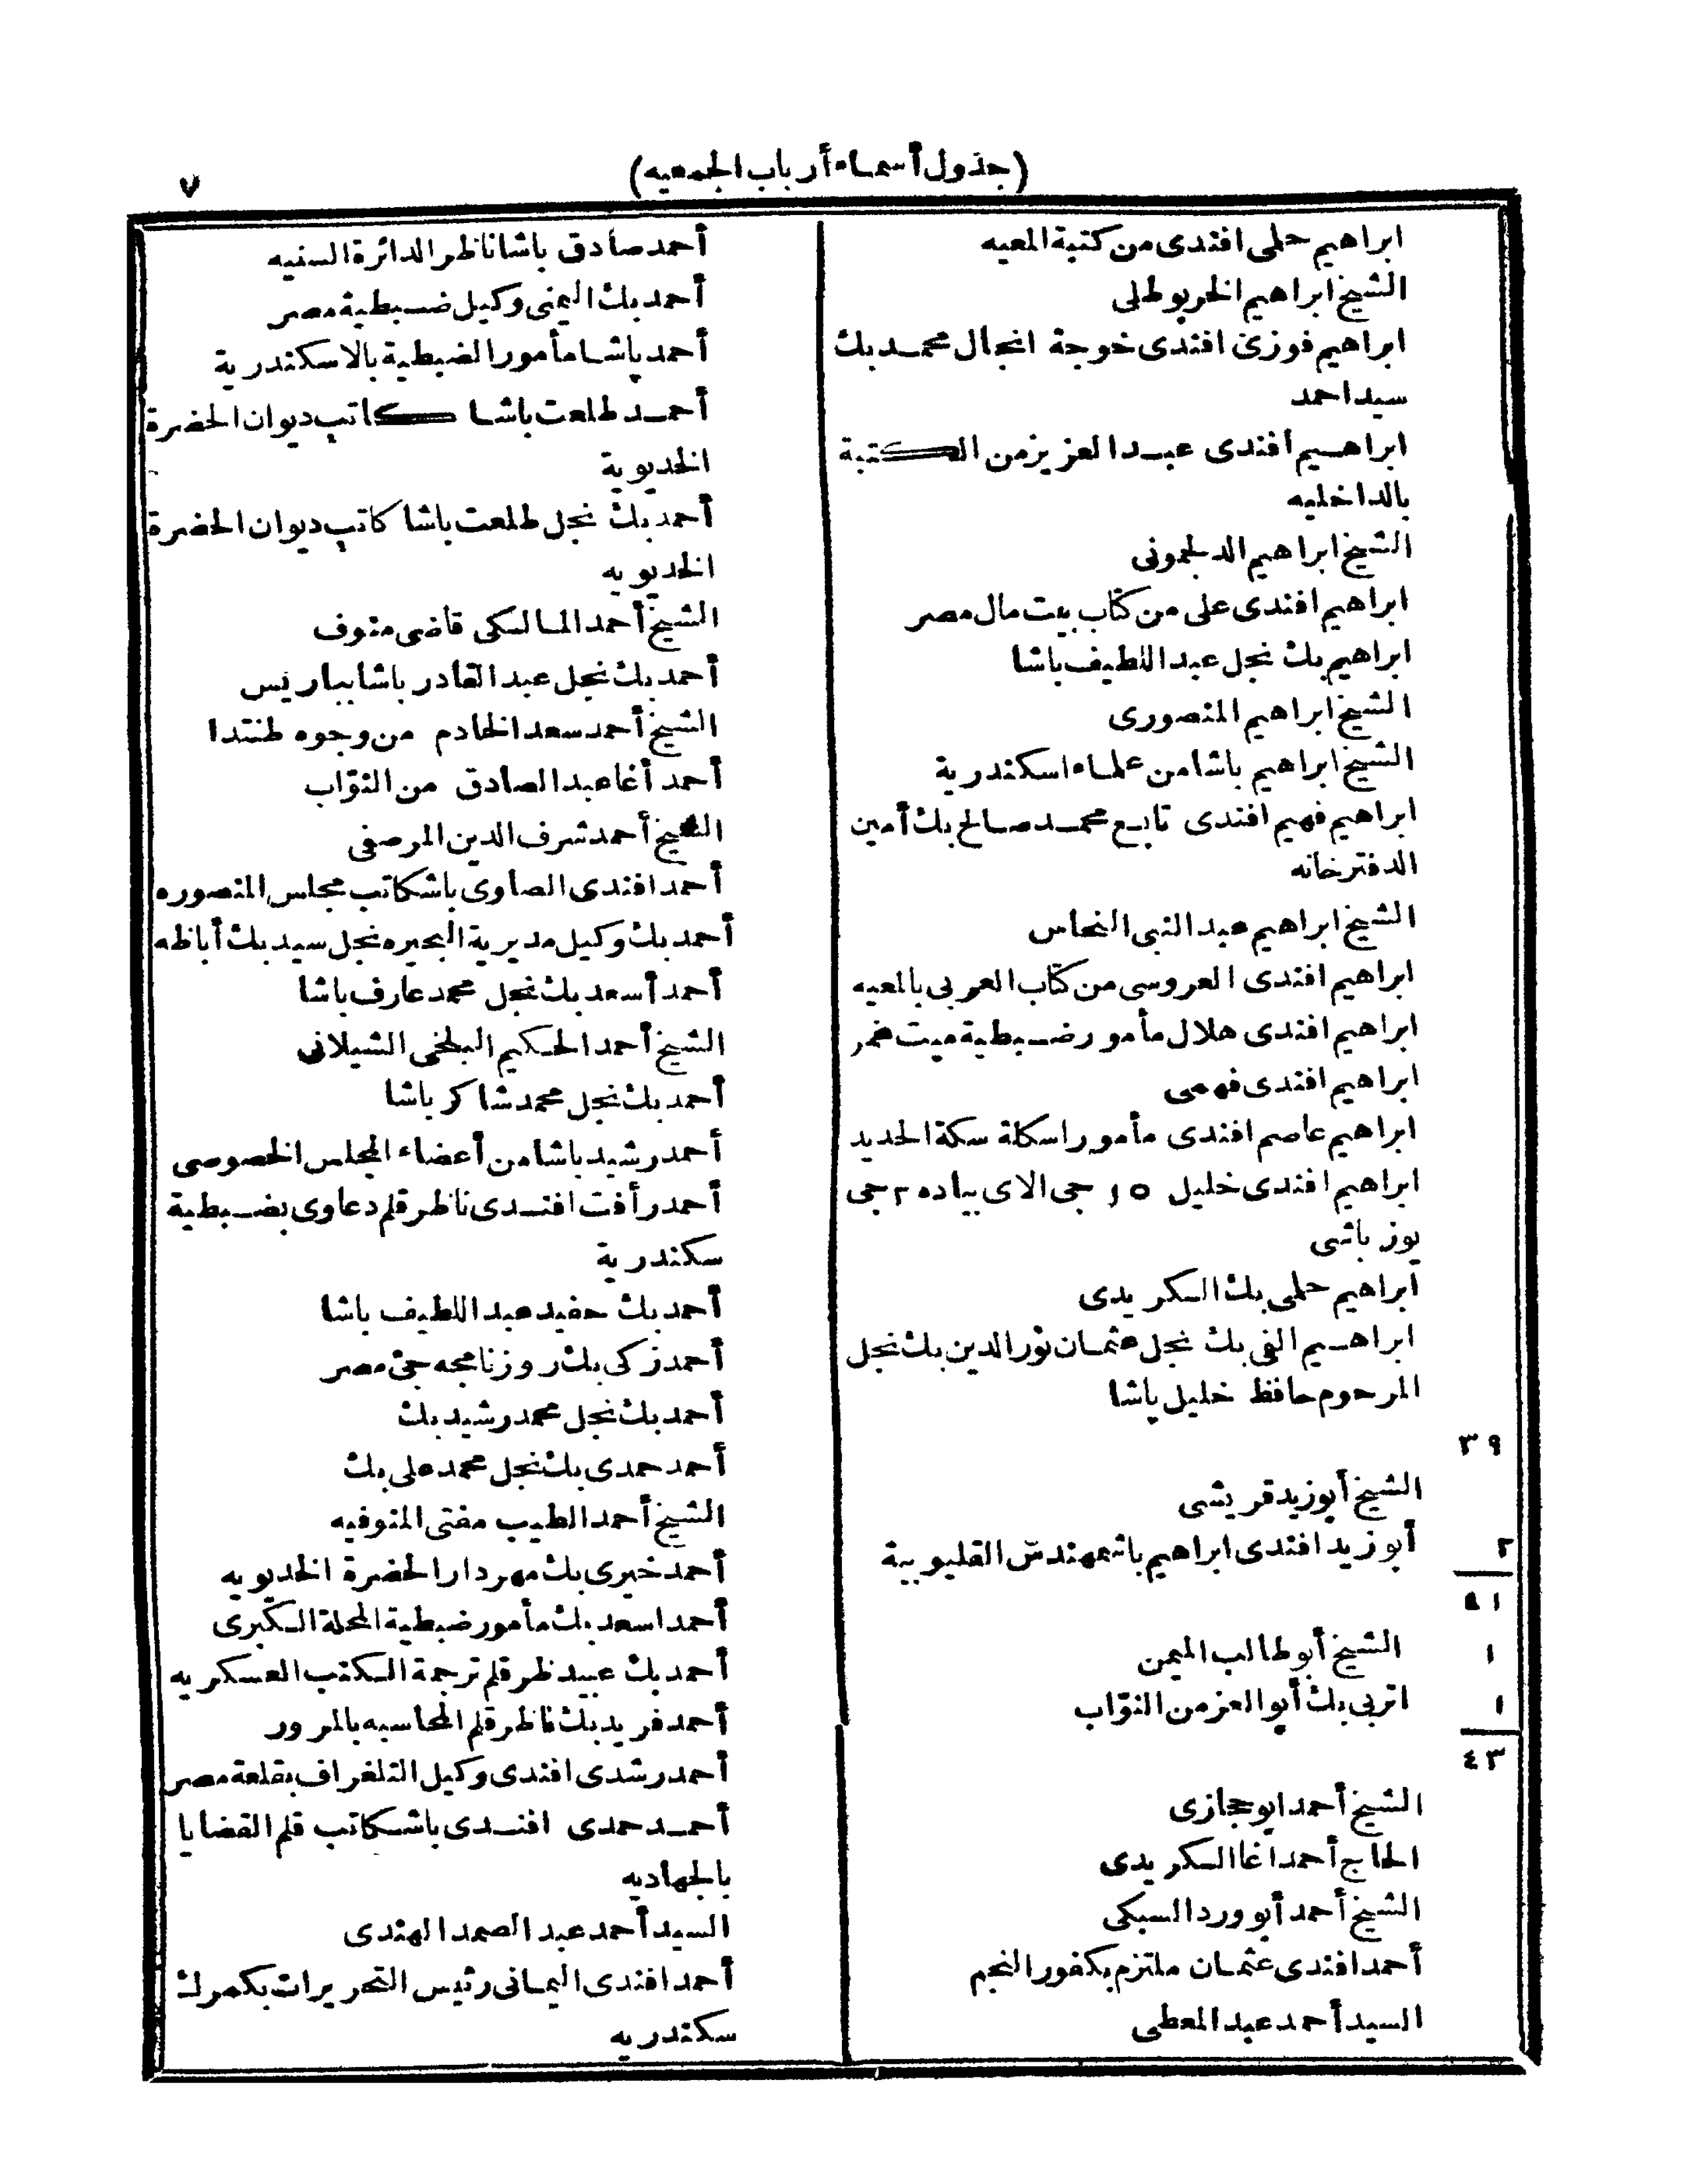 (جدول أسماء أرباب الجمعيه)
٧
ابراهيم حلمى افندى من كتبة المعيه
الشيخ ابراهيم الخربوطلى
ابراهيم فوزى افندى خوجة انجال محمد بك
سيد احمد
ابراهيم أفندى عبد العزيز من الكتبة
بالداخليه
الشيخ ابراهيم الدلجمونى
ابراهيم افندى على من كتاب بيت مال مصر
ابراهيم بك نجل عبد اللطيف باشا
الشيخ ابراهيم المنصورى
الشيخ ابراهيم باشا من علماء اسكندرية
ابراهيم فهيم افندى تابع محمد صالح بك أمين
الدفترخانه
الشيخ ابراهيم عبد النبى النحاس
ابراهيم افندى العروسى من كتاب العربى بالمعيه
ابراهيم افندى هلال مأمور ضبطية ميت غمر
ابراهيم افندى فهمى
ابراهيم عاصم افندى مأمور اسكلة سكة الحديد
ابراهيم افندى خليل ١٥ جى الاى بياده ٢ جى
يوز باشى
ابراهيم حلمى بك السكريدى
ابراهيم الفى بك نجل عثمان نور الدين بك نجل
المرحوم حافظ خليل باشا
٣٩
الشيخ أبو زيد قريشى
أبو زيد افندى ابراهيم باشمهندس القليوبية
٢
٤١
الشيخ أبو طالب الميمن
١
اتربى بك أبو العز من النوّاب
١
٤٣
الشيخ أحمد ابو حجازى
الحاج أحمد اغا السكريدى
الشيخ أحمد أبو ورد السبكى
أحمد افندى عثمان ملتزم بكفور النجم
السيد أحمد عبد المعطى
أحمد صادق باشا ناظر الدائرة السنيه
أحمد بك اليمنى وكيل ضبطية مصر
أحمد باشا مأمور الضبطية بالاسكندرية
أحمد طلعت باشا كاتب ديوان الحضرة
الخديوية
أحمد بك نجل طلعت باشا كاتب ديوان الحضرة
الخديويه
الشيخ أحمد المالكى قاضى منوف
أحمد بك نجل عبد القادر باشا بباريس
الشيخ أحمد سعد الخادم من وجوه طنتدا
أحمد أغا عبد الصادق من النوّاب
الشيخ أحمد شرف الدين المرصفى
أحمد افندى الصاوى باشكاتب مجلس المنصوره
أحمد بك وكيل مديرية البحيره نجل سيد بك أباظه
أحمد أسعد بك نجل محمد عارف باشا
الشيخ أحمد الحكيم البلخى الشيلانى
أحمد بك نجل محمد شاكر باشا
أحمد رشيد باشا من أعضاء المجلس الخصوصى
أحمد رأفت افندى ناظر قلم دعاوى بضبطية
سكندرية
أحمد بك حفيد عبد اللطيف باشا
أحمد زكى بك روزنامجه جئ مصر
أحمد بك نجل محمد رشيد بك
أحمد حمدى بك نجل محمد على بك
الشيخ أحمد الطيب مفتى المنوفيه
أحمد خيرى بك مهردار الحضرة الخديويه
أحمد اسعد بك مأمور ضبطية المحلة الكبرى
أحمد بك عبيد ظر قلم ترجمة الكتب العسكريه
أحمد فريد بك ناظر قلم المحاسبه بالمرور
أحمد رشدى افندى وكيل التلغراف بقلعة مصر
أحمد حمدى افندى باشكاتب قلم القضايا
بالجهاديه
السيد أحمد عبد الصمد الهندى
أحمد افندى اليمانى رئيس التحريرات بكمرك
سكندريه